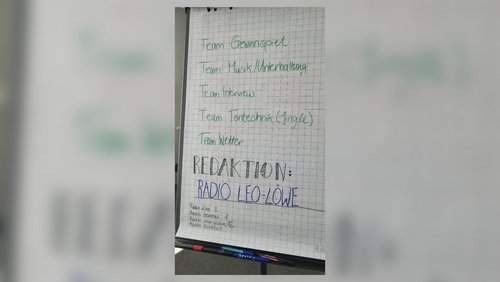 Team Gewinnspiel
Team Musik/Unterhaltung
Team Interview
Team Tontechnik (Jingle)
Team Wetter
REDAKTION:
RADIO LEO-LÖWE
Radio
Radio
Radio
Radio